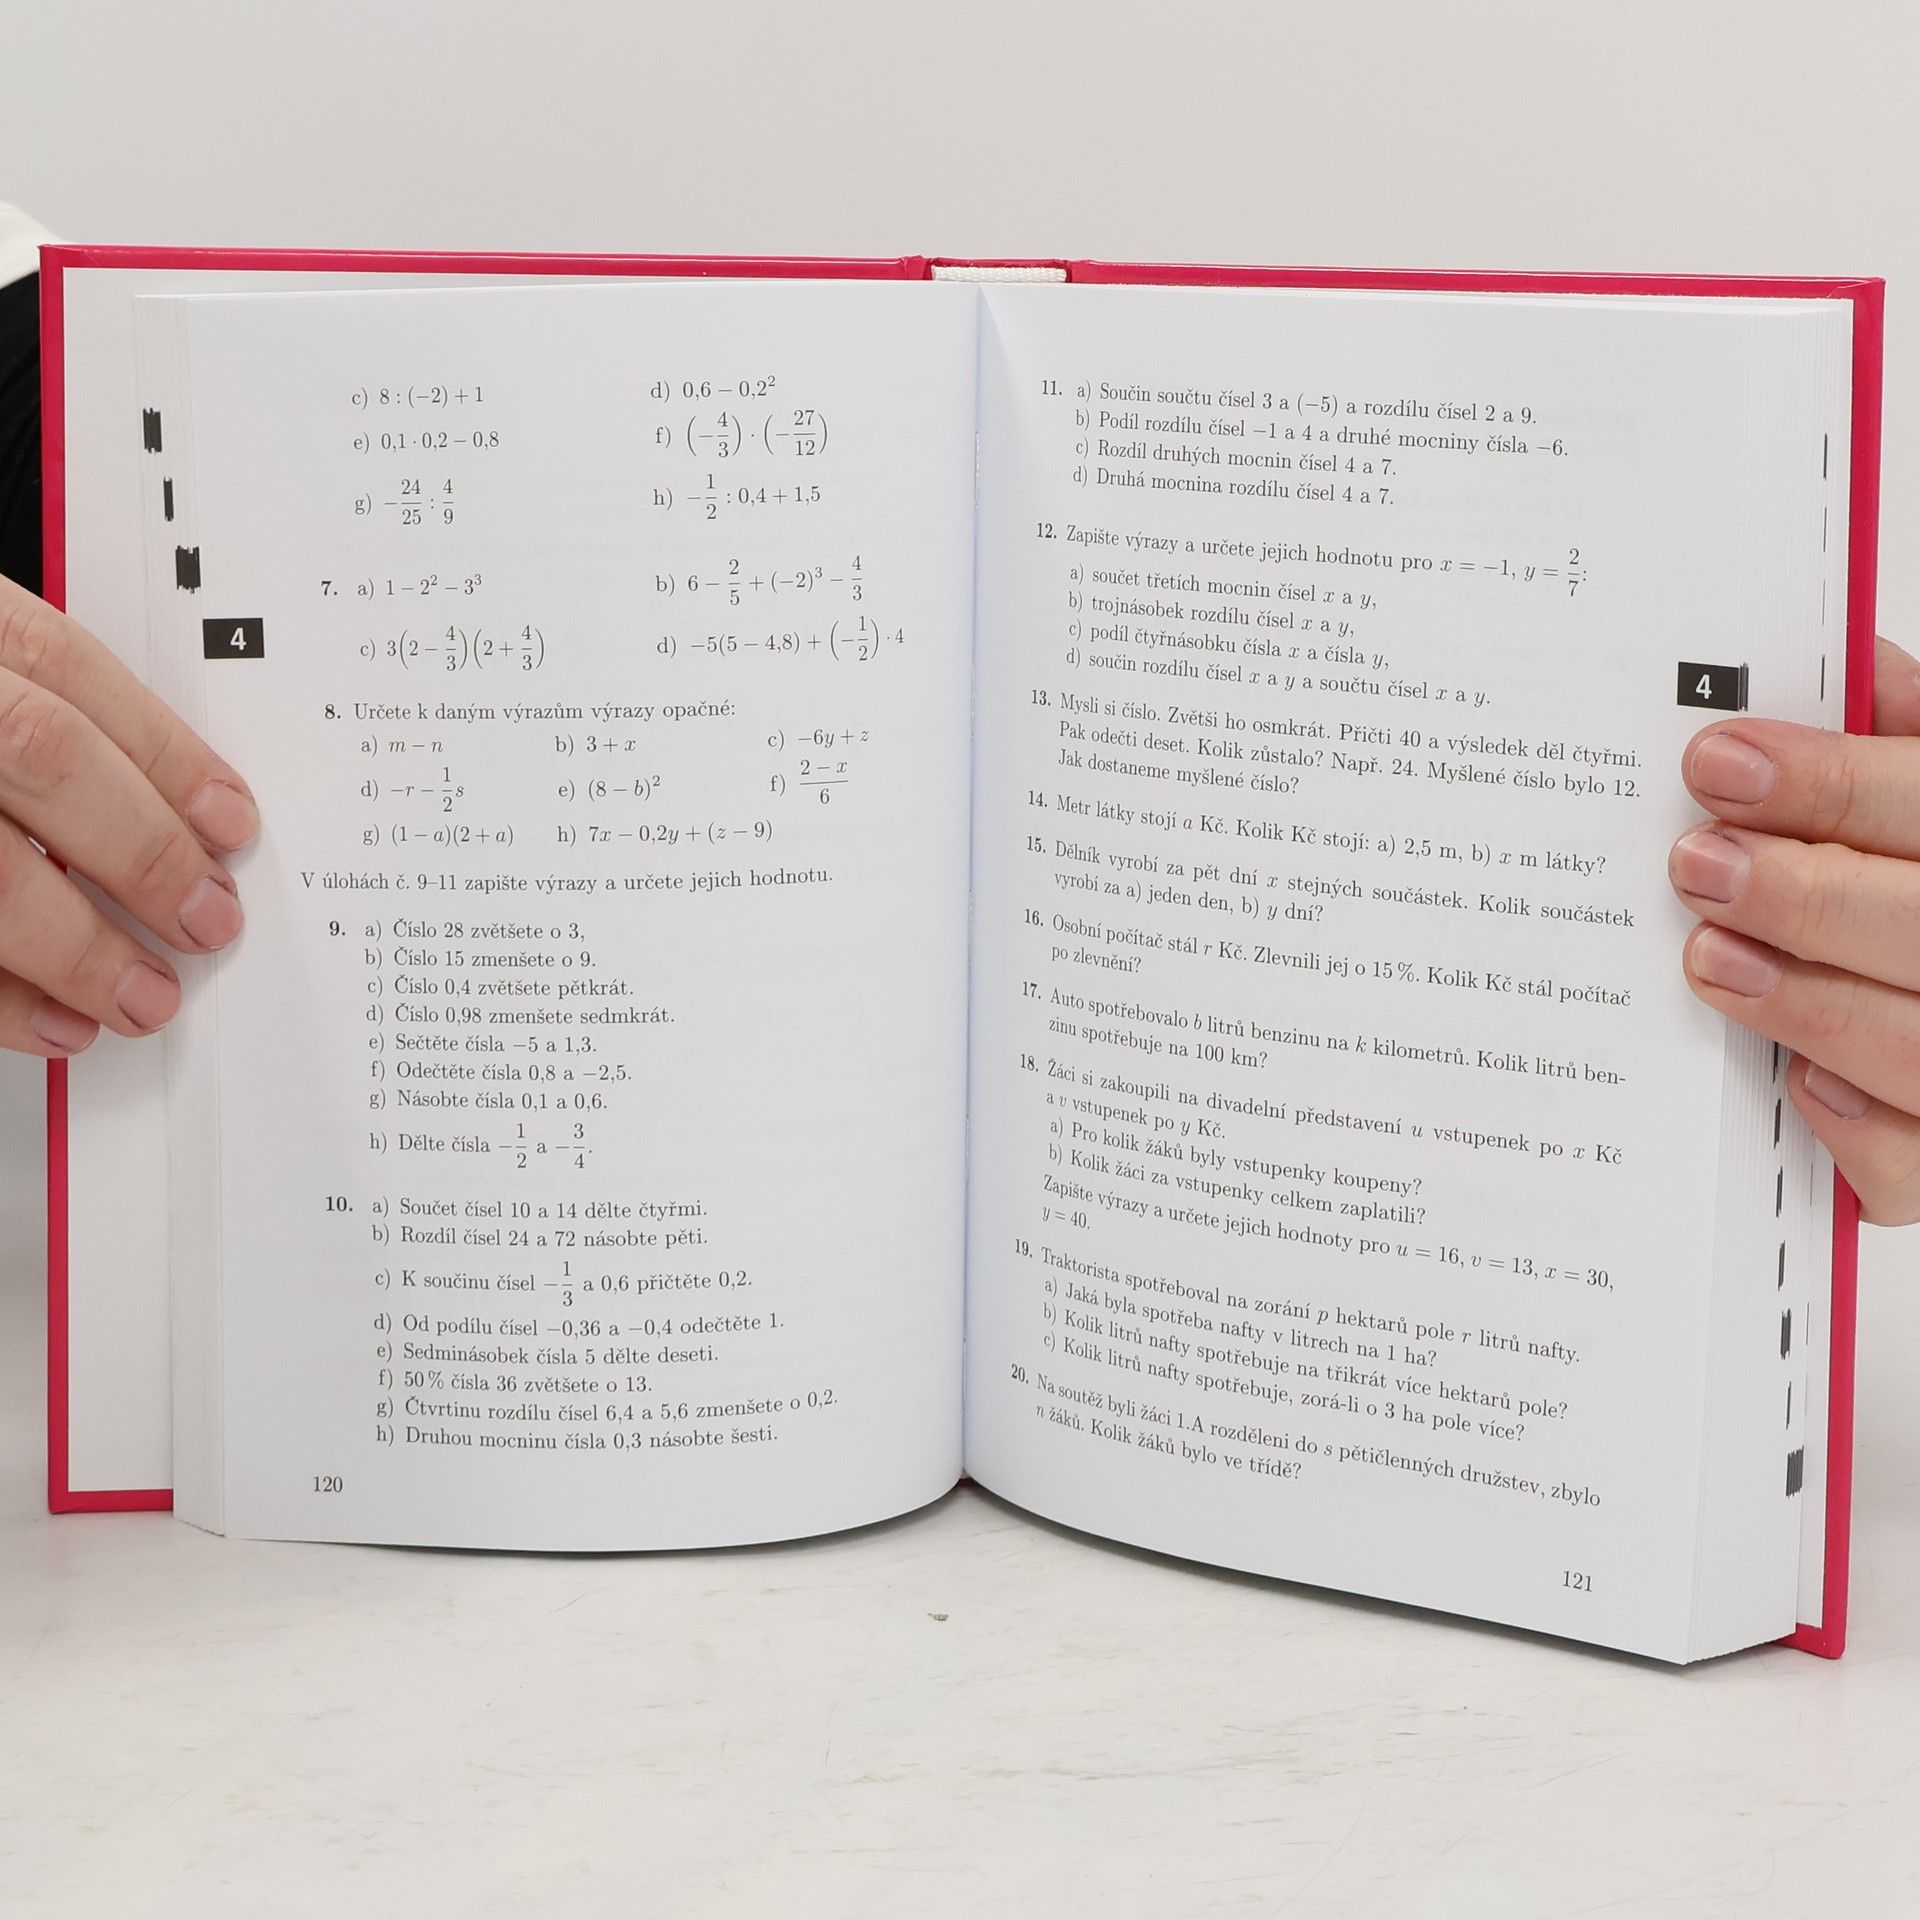 c) 8 : (−2) + 1 d) 0,6 − 0,2²
e) 0,1 · 0,2 − 0,8 f) (−4/3) · (−27/12)
g) −24/25 : 4/9 h) −1/2 : 0,4 + 1,5
7. a) 1 − 2² − 3³ b) 6 − 2/5 + (−2)³ − 4/3
4
c) 3(2 − 4/3)(2 + 4/3) d) −5(5 − 4,8) + (−1/2) · 4
8. Určete k daným výrazům výrazy opačné:
a) m − n b) 3 + x c) −6y + z
d) −r − 1/2 s e) (8 − b)² f) (2 − x)/6
g) (1 − a)(2 + a) h) 7x − 0,2y + (z − 9)
V úlohách č. 9–11 zapište výrazy a určete jejich hodnotu.
9. a) Číslo 28 zvětšete o 3,
b) Číslo 15 zmenšete o 9.
c) Číslo 0,4 zvětšete pětkrát.
d) Číslo 0,98 zmenšete sedmkrát.
e) Sečtěte čísla −5 a 1,3.
f) Odečtěte čísla 0,8 a −2,5.
g) Násobte čísla 0,1 a 0,6.
h) Dělte čísla −1/2 a −3/4.
10. a) Součet čísel 10 a 14 dělte čtyřmi.
b) Rozdíl čísel 24 a 72 násobte pěti.
c) K součinu čísel −1/3 a 0,6 přičtěte 0,2.
d) Od podílu čísel −0,36 a −0,4 odečtěte 1.
e) Sedminásobek čísla 5 dělte deseti.
f) 50 % čísla 36 zvětšete o 13.
g) Čtvrtinu rozdílu čísel 6,4 a 5,6 zmenšete o 0,2.
h) Druhou mocninu čísla 0,3 násobte šesti.
120
11. a) Součin součtu čísel 3 a (−5) a rozdílu čísel 2 a 9.
b) Podíl rozdílu čísel −1 a 4 a druhé mocniny čísla −6.
c) Rozdíl druhých mocnin čísel 4 a 7.
d) Druhá mocnina rozdílu čísel 4 a 7.
12. Zapište výrazy a určete jejich hodnotu pro x = −1, y = 2/7:
a) součet třetích mocnin čísel x a y,
b) trojnásobek rozdílu čísel x a y,
c) podíl čtyřnásobku čísla x a čísla y,
d) součin rozdílu čísel x a y a součtu čísel x a y.
4
13. Mysli si číslo. Zvětši ho osmkrát. Přičti 40 a výsledek děl čtyřmi.
Pak odečti deset. Kolik zůstalo? Např. 24. Myšlené číslo bylo 12.
Jak dostaneme myšlené číslo?
14. Metr látky stojí a Kč. Kolik Kč stojí: a) 2,5 m, b) x m látky?
15. Dělník vyrobí za pět dní x stejných součástek. Kolik součástek
vyrobí za a) jeden den, b) y dní?
16. Osobní počítač stál r Kč. Zlevnili jej o 15 %. Kolik Kč stál počítač
po zlevnění?
17. Auto spotřebovalo b litrů benzinu na k kilometrů. Kolik litrů ben-
zinu spotřebuje na 100 km?
18. Žáci si zakoupili na divadelní představení u vstupenek po x Kč
a v vstupenek po y Kč.
a) Pro kolik žáků byly vstupenky koupeny?
b) Kolik žáci za vstupenky celkem zaplatili?
Zapište výrazy a určete jejich hodnoty pro u = 16, v = 13, x = 30,
y = 40.
19. Traktorista spotřeboval na zorání p hektarů pole r litrů nafty.
a) Jaká byla spotřeba nafty v litrech na 1 ha?
b) Kolik litrů nafty spotřebuje na třikrát více hektarů pole?
c) Kolik litrů nafty spotřebuje, zorá-li o 3 ha pole více?
20. Na soutěž byli žáci 1.A rozděleni do s pětičlenných družstev, zbylo
n žáků. Kolik žáků bylo ve třídě?
121